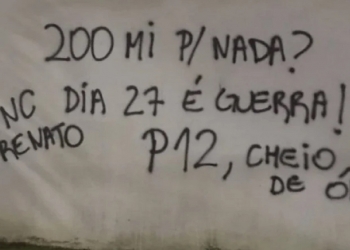 200 MI P/ NADA?
NC DIA 27 É GUERRA!
RENATO P12, CHEIO,
DE Ó